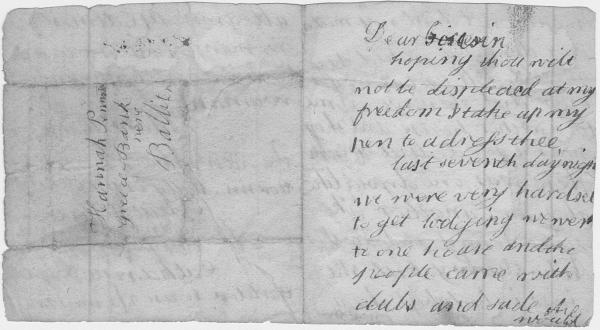 Hannah
near
Dear
hoping thou wilt
not be displeaced at my
freedom I take up my
pen to adress thee
last seventh day nigh
we were very hardset
to get lodging we wer
to one house and the
people came with
clubs and sade the
would